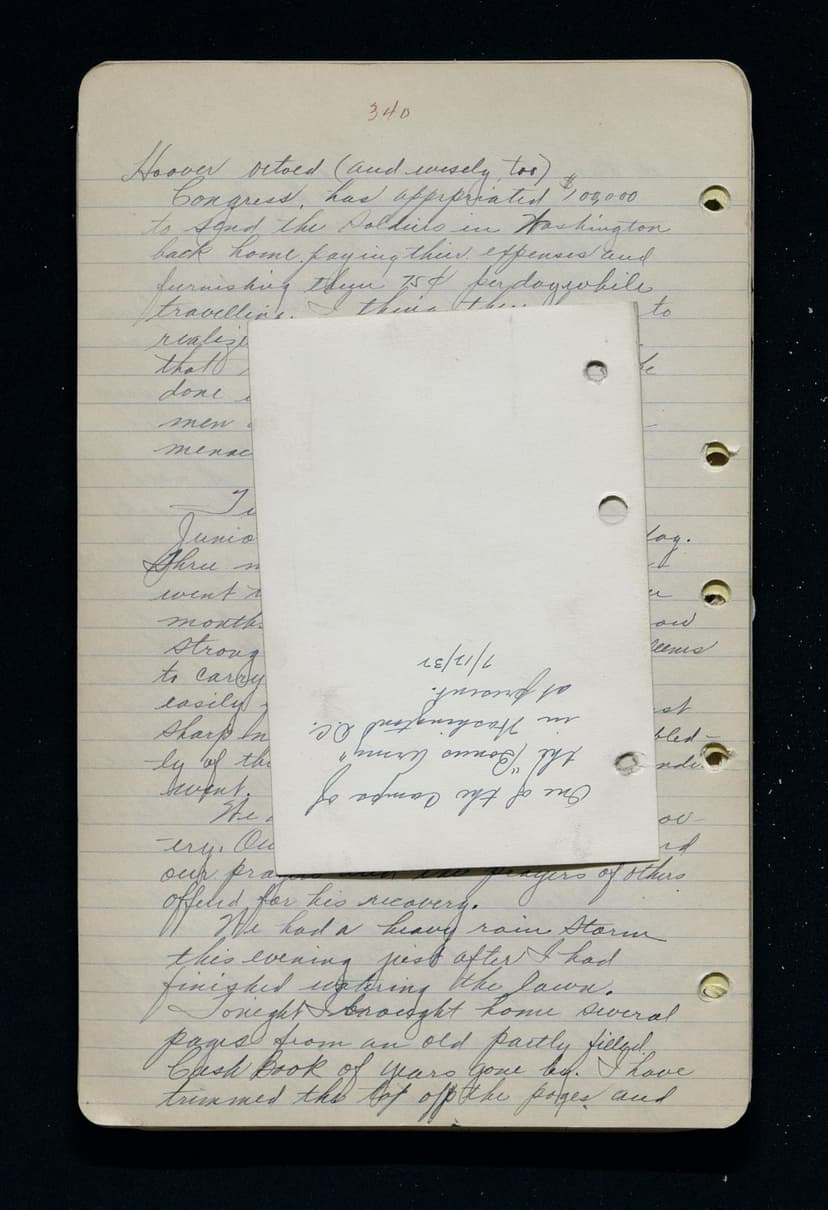 340
Hoover vetoed (and wisely, too)
Congress, has apprpriated $100,000
to send the soldiers in Washington
back home paying their expenses and
furnishing them 75¢ per day while
travelling. I to
that
done
men
Junio day.
Three
went
month
strong
to carry
easily
sharp
ly of the
We
ery. Ou
our prayers and the prayers of others
offered for his recovery.
We had a heavy rain storm
this evening just after I had
finished watering the lawn.
Tonight I brought home several
pages from an old partly filled
Cash Book of years gone by. I have
trimmed the top off the pages and
One of the Camps of
the "Bonus Army"
in Washington D.C.
at present.
7/12/32